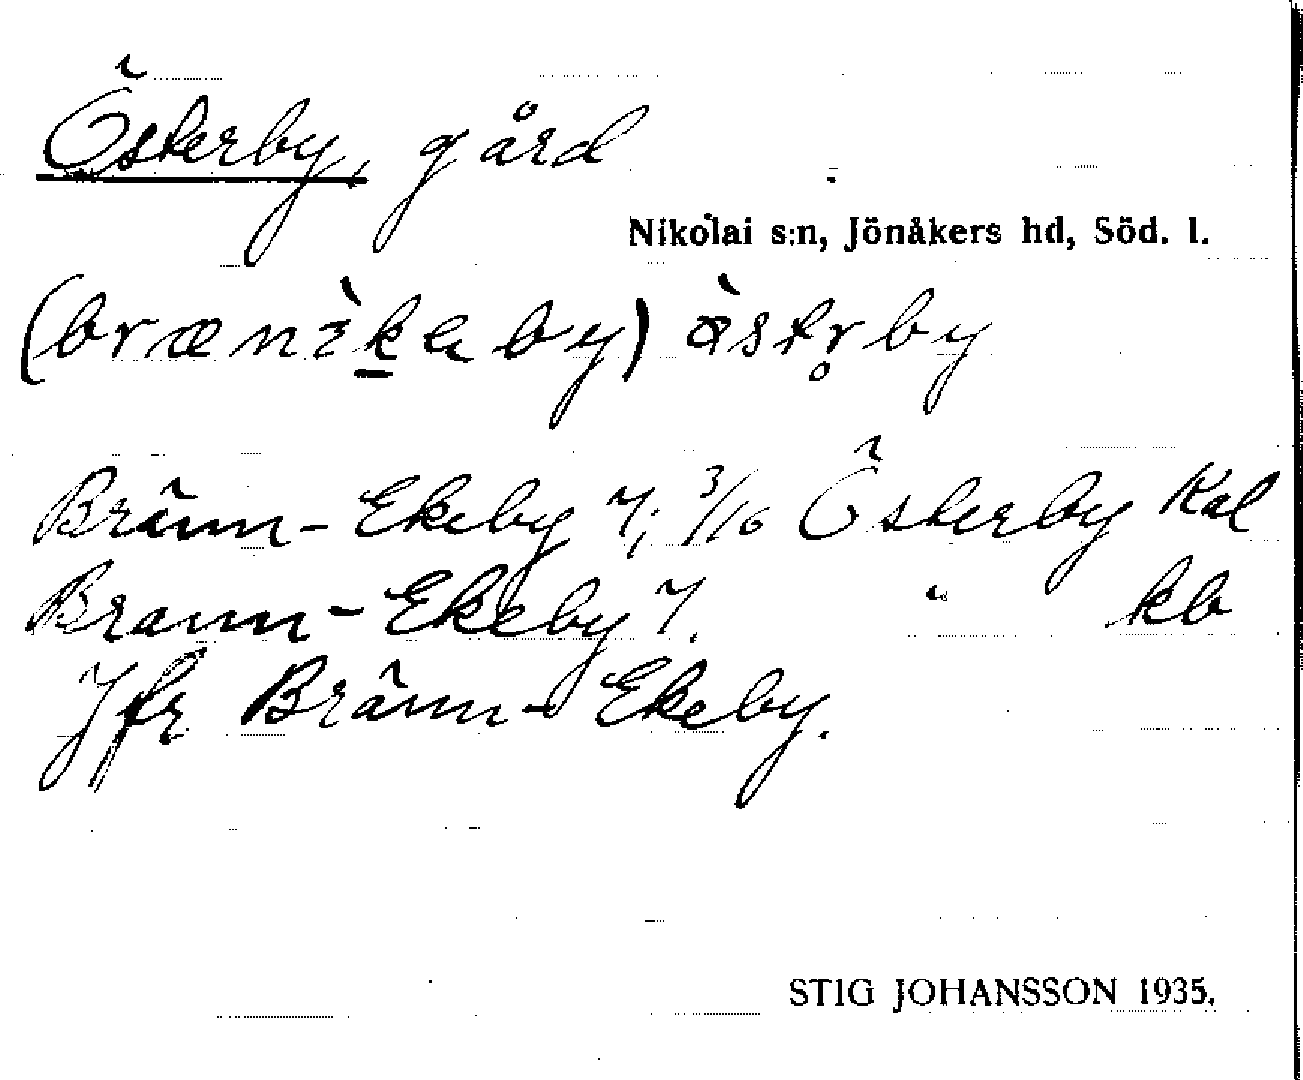 Österby, gård
Nikolai s:n, Jönåkers hd, Söd. l.
(bræn ὶkeby) ö̀str̥by
Bränn-Ekeby 7; 3/16 Österby Kal
Brann-Ekeby 7. " kb
Jfr Bränn-Ekeby.
STIG JOHANSSON 1935.